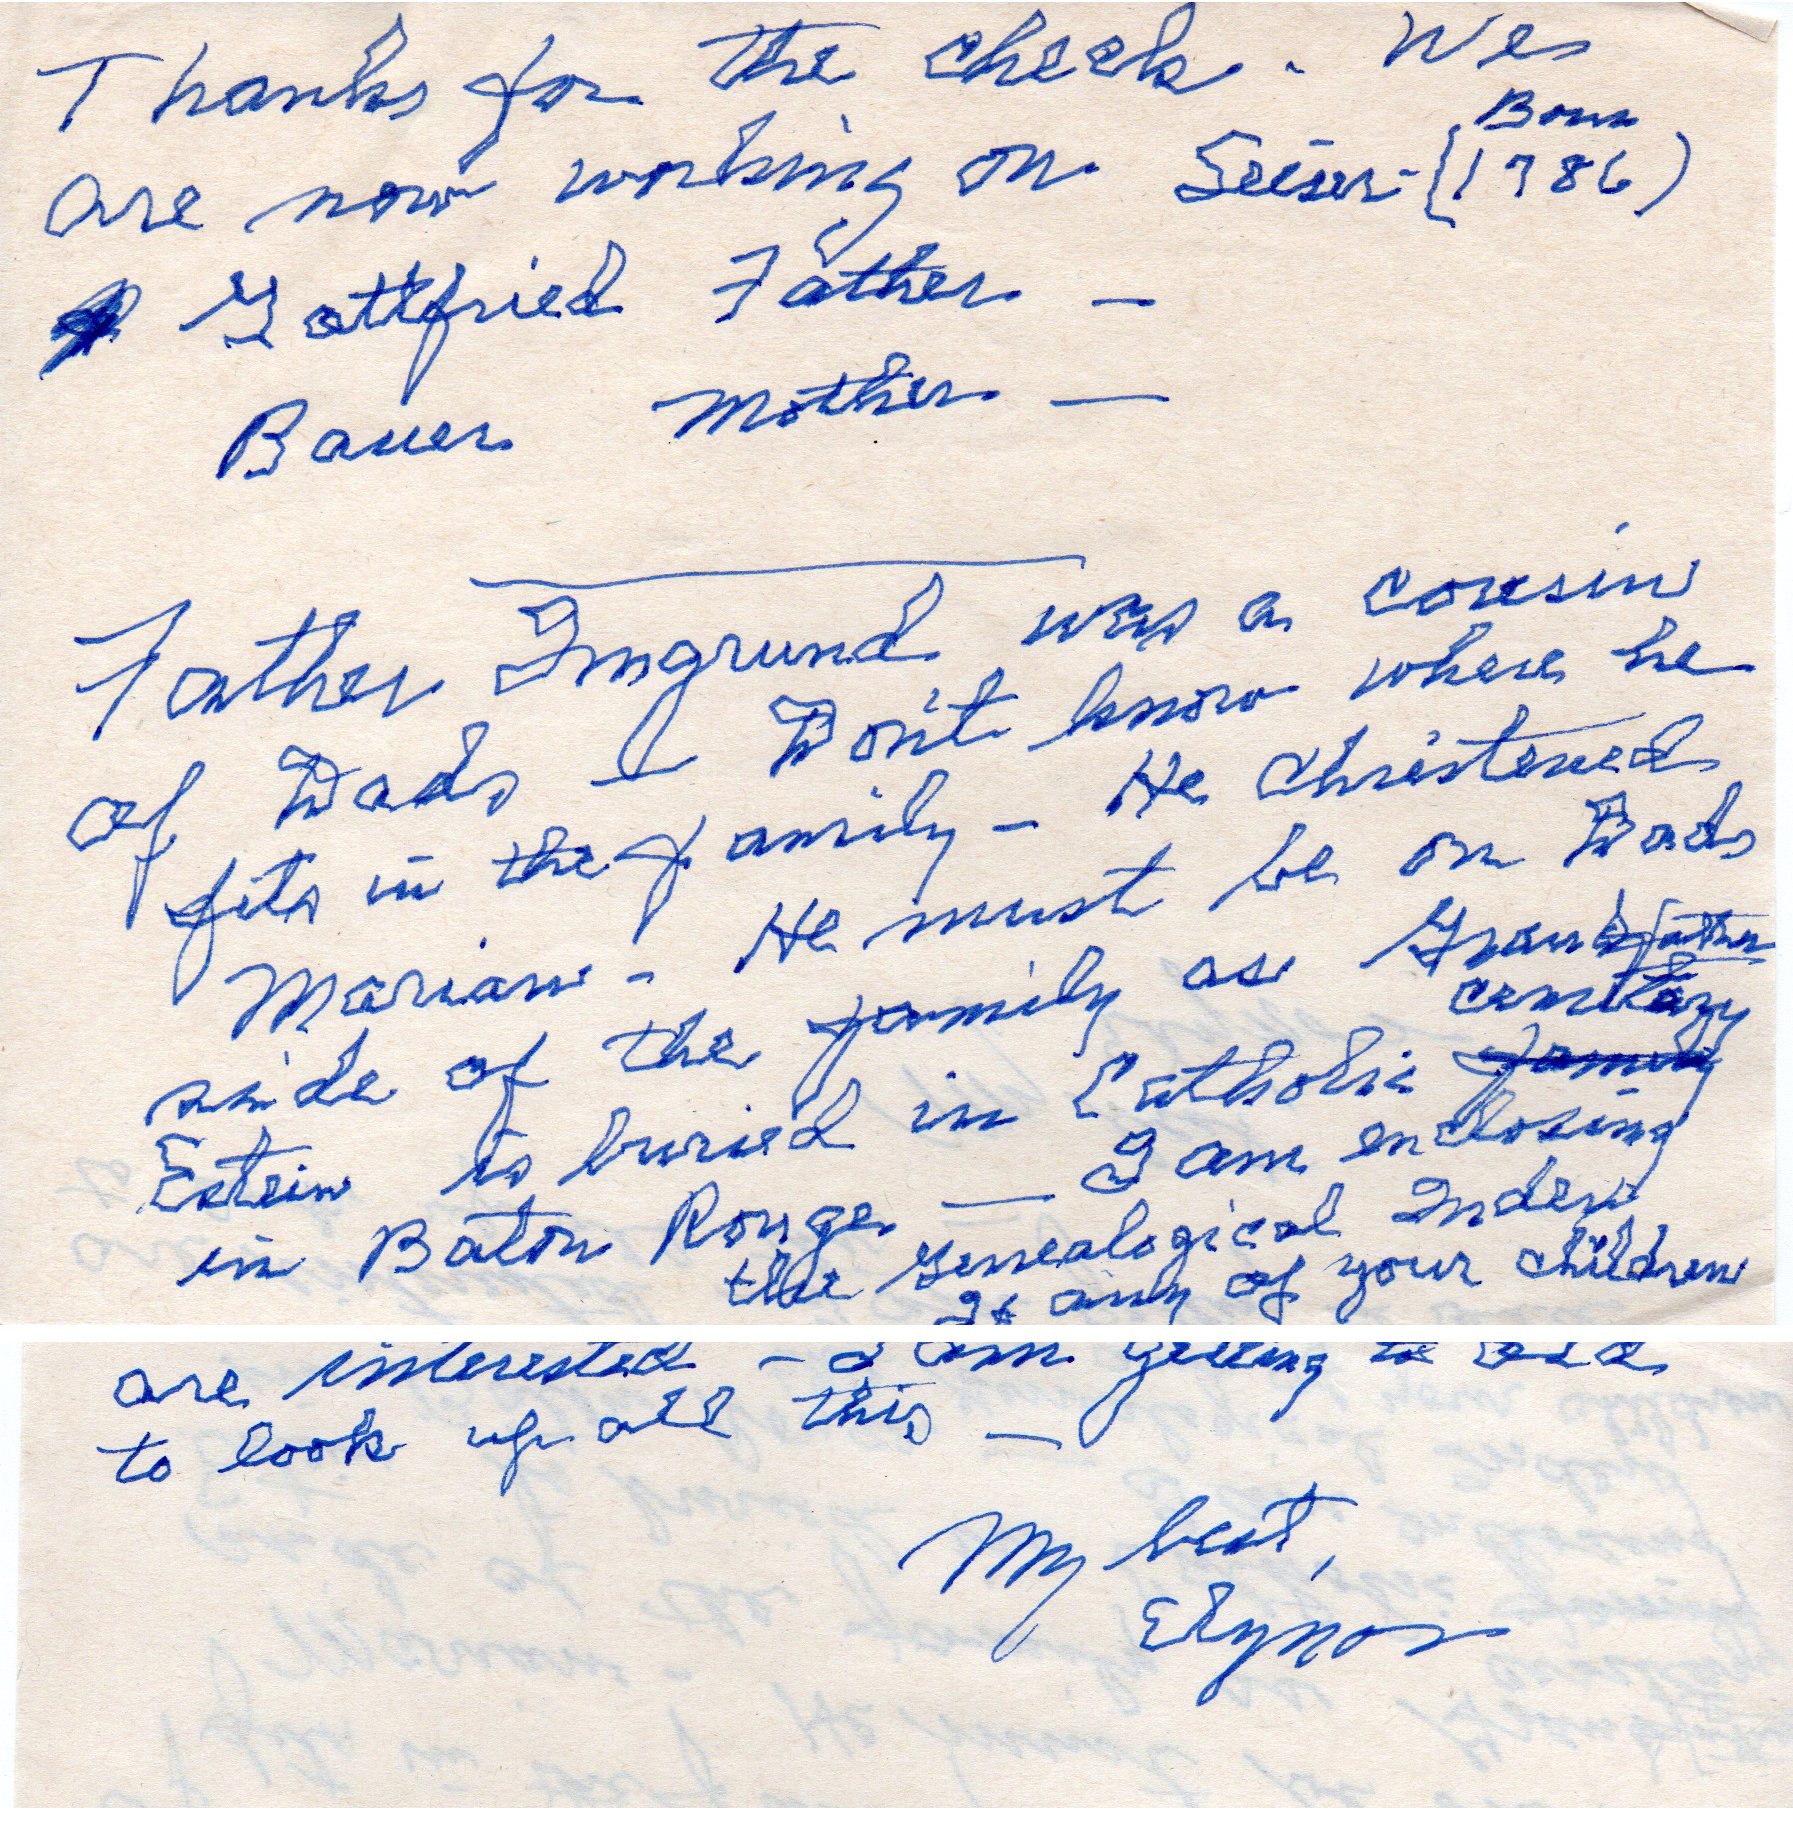 Thanks for the check. We
Born
are now working on Seiser - (1786)
Gottfried Father —
Bauer Mother —
Father Imgrund was a cousin
of Dads — I Don't know where he
fits in the family - He christened
Marian - He must be on Dads
side of the family as Grandfather
Estein is buried in Catholic cemetary
in Baton Rouge — I am enclosing
the Genealogical Index
If any of your children
are interested - I am getting to old
to look up all this —
My best,
Elynor